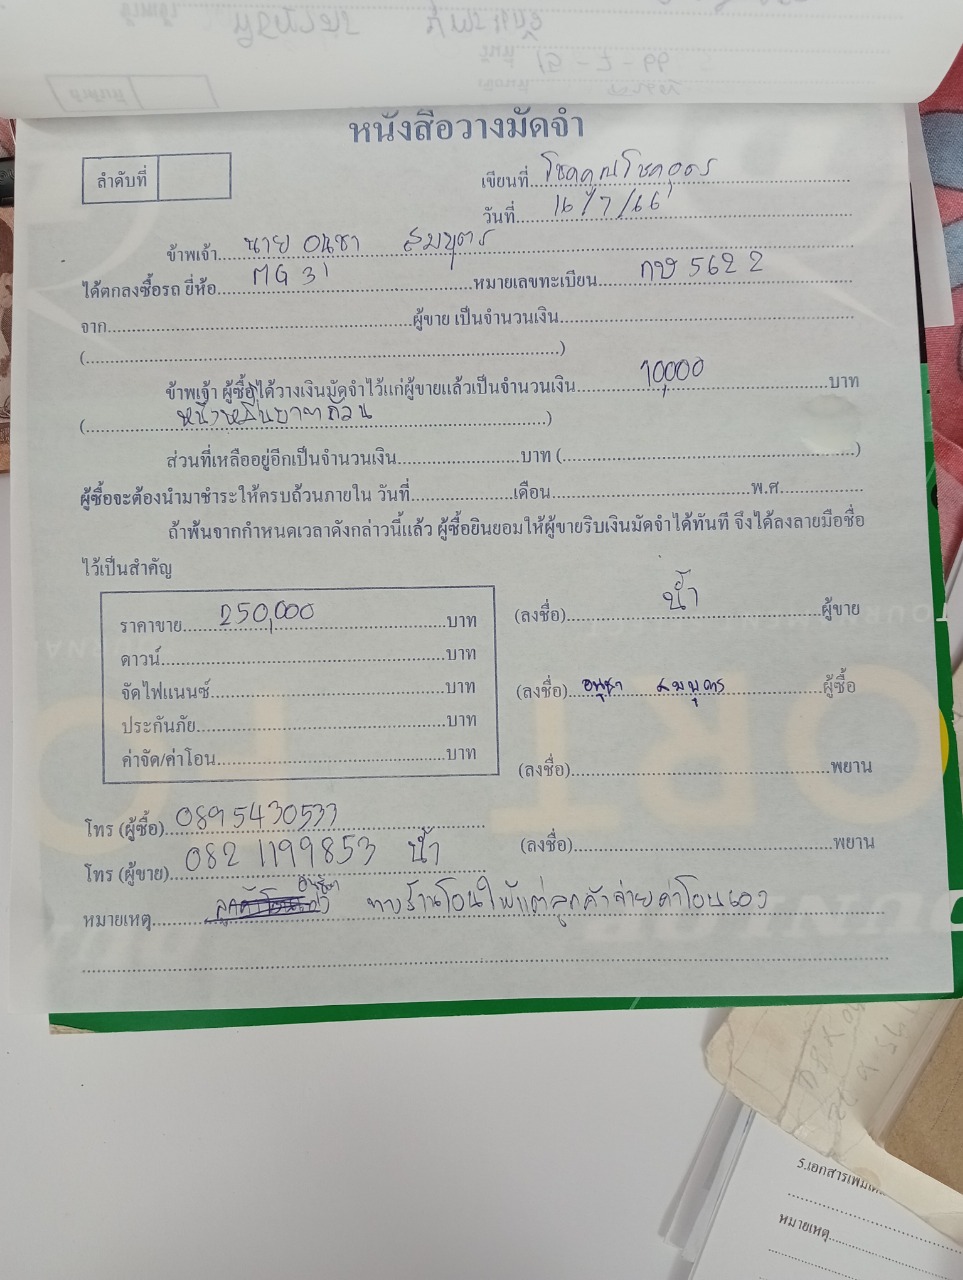 หนังสือวางมัดจำ
ลำดับที่
เขียนที่ โชคคูณโชคอุดร
วันที่ 16/7/66
ข้าพเจ้า นาย อนุชา สมบุตร
ได้ตกลงซื้อรถ ยี่ห้อ MG 3 หมายเลขทะเบียน กษ 5622
จาก ผู้ขาย เป็นจำนวนเงิน
( )
ข้าพเจ้า ผู้ซื้อได้วางเงินมัดจำไว้แก่ผู้ขายแล้วเป็นจำนวนเงิน 10,000 บาท
( หนึ่งหมื่นบาทถ้วน )
ส่วนที่เหลืออยู่อีกเป็นจำนวนเงิน บาท ( )
ผู้ซื้อจะต้องนำมาชำระให้ครบถ้วนภายใน วันที่ เดือน พ.ศ.
ถ้าพ้นจากกำหนดเวลาดังกล่าวนี้แล้ว ผู้ซื้อยินยอมให้ผู้ขายริบเงินมัดจำได้ทันที จึงได้ลงลายมือชื่อ
ไว้เป็นสำคัญ
ราคาขาย 250,000 บาท
ดาวน์ บาท
จัดไฟแนนซ์ บาท
ประกันภัย บาท
ค่าจัด/ค่าโอน บาท
(ลงชื่อ) น้ำ ผู้ขาย
(ลงชื่อ) อนุชา สมบุตร ผู้ซื้อ
(ลงชื่อ) พยาน
(ลงชื่อ) พยาน
โทร (ผู้ซื้อ) 0895430533
โทร (ผู้ขาย) 082 1199853 น้ำ
หมายเหตุ อนุชา ทางร้านโอนให้แต่ลูกค้าจ่ายค่าโอนเอง
5.เอกสารเพิ่มเติม
หมายเหตุ